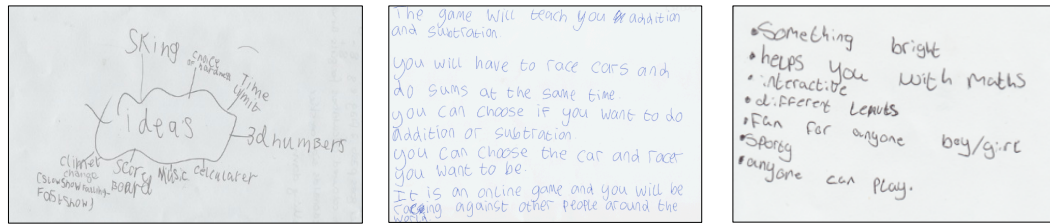 SKiing
choice
or hardness
Time
Limit
ideas
3d numbers
climet
change
Score
Board
Music
calculater
The game will teach you addition
and subtration.
you will have to race cars and
do sums at the same time.
you can choose if you want to do
addition or subtration
you can choose the car and racer
you want to be.
It is an online game and you will be
racing against other people around the
world.
•Something bright
•helps you with maths
•interactive
•different
•Fun for anyone boy/girl
•Sporty
•anyone can play.